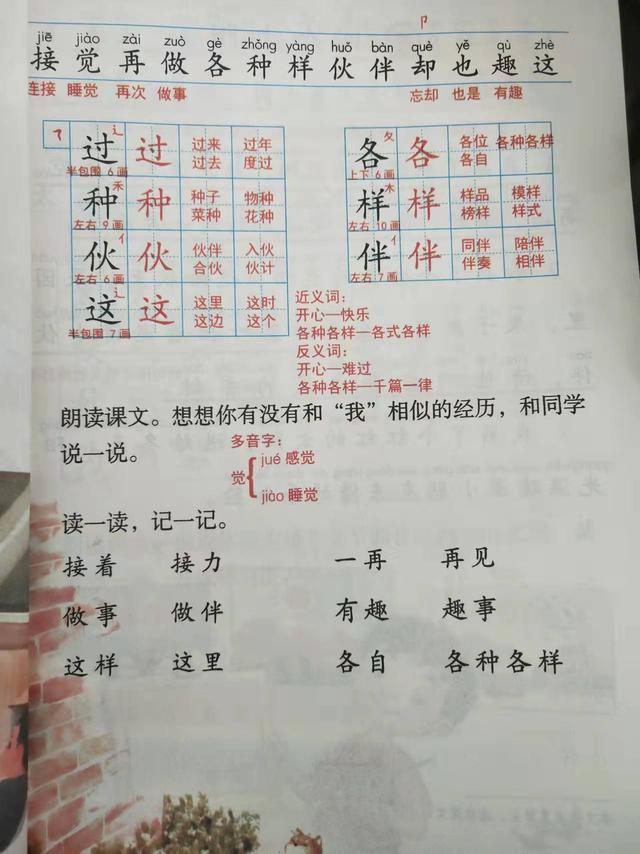 卩
jiē jiào zài zuò gè zhǒng yàng huǒ bàn què yě qù zhè
接 觉 再 做 各 种 样 伙 伴 却 也 趣 这
连接 睡觉 再次 做事 忘却 也是 有趣
7
过 辶 半包围 6画 过 过来 过年
过去 度过
各 夂 上下 6画 各 各位 各种各样
各自
种 禾 左右 9画 种 种子 物种
菜种 花种
样 木 左右 10画 样 样品 模样
榜样 样式
伙 亻 左右 6画 伙 伙伴 入伙
合伙 伙计
伴 亻 左右 7画 伴 同伴 陪伴
伴奏 相伴
这 辶 半包围 7画 这 这里 这时
这边 这个
近义词：
开心—快乐
各种各样—各式各样
反义词：
开心—难过
各种各样—千篇一律
朗读课文。想想你有没有和“我”相似的经历，和同学
说一说。
多音字：
觉 { jué 感觉
jiào 睡觉
读一读，记一记。
接着 接力 一再 再见
做事 做伴 有趣 趣事
这样 这里 各自 各种各样